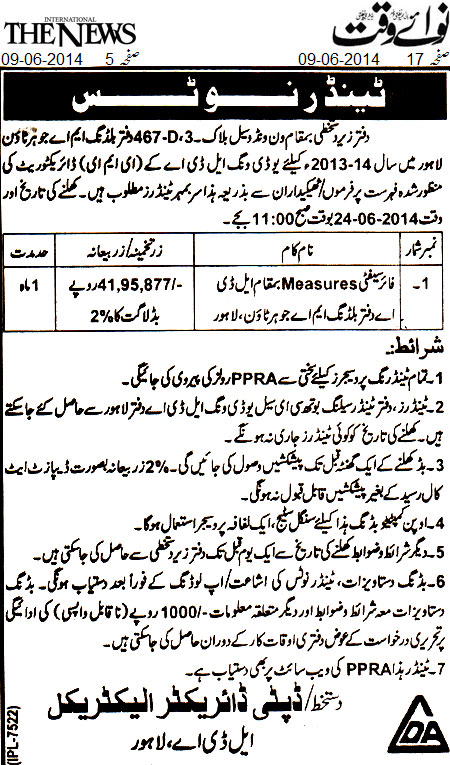 INTERNATIONAL
THE NEWS
نوائے وقت
09-06-2014 صفحہ 5
09-06-2014 صفحہ 17
ٹینڈر نوٹس
دفتر زیر دستخطی بمقام ون ونڈو سیل بلاک۔3،467-D دفتر بلڈنگ ایم اے جوہر ٹاؤن
لاہور میں سال 14-2013ء کیلئے یو ڈی ونگ ایل ڈی اے کے (ای ایم ای) ڈائریکٹوریٹ کی
منظور شدہ فہرست پر فرموں/ٹھیکیداران سے بذریعہ ہذا سربمہر ٹینڈرز مطلوب ہیں۔ کھلنے کی تاریخ اور
وقت 24-06-2014 بوقت صبح 11:00 بجے۔
نمبر شمار نام کام زر تخمینہ/زر بیعانہ حد مدت
1۔ فائر سیفٹی Measures بمقام ایل ڈی 41,95,877/- روپے 1 ماہ
اے دفتر بلڈنگ ایم اے جوہر ٹاؤن، لاہور بڈ لاگت کا %2
شرائط:۔
1۔ تمام ٹینڈرنگ پروسیجرز کیلئے سختی سے PPRA رولز کی پیروی کی جائیگی۔
2۔ ٹینڈرز، دفتر ٹینڈر سیلنگ بوتھ سی ای سیل یو ڈی ونگ ایل ڈی اے دفتر لاہور سے حاصل کئے جا سکتے
ہیں۔ کھلنے کی تاریخ کو کوئی ٹینڈرز جاری نہ ہونگے۔
3۔ بڈ کھلنے کے ایک گھنٹہ قبل تک پیشکشیں وصول کی جائیں گی۔ %2 زر بیعانہ بصورت ڈیپازٹ ایٹ
کال رسید کے بغیر پیشکشیں قابل قبول نہ ہونگی۔
4۔ اوپن کمپٹیٹو بڈنگ ہذا کیلئے سنگل سٹیج، ایک لفافہ پروسیجر استعمال ہوگا۔
5۔ دیگر شرائط و ضوابط کھلنے کی تاریخ سے ایک یوم قبل تک دفتر زیر دستخطی سے حاصل کی جاسکتی ہیں۔
6۔ بڈنگ دستاویزات، ٹینڈر نوٹس کی اشاعت/اپ لوڈنگ کے فوراً بعد دستیاب ہونگی۔ بڈنگ
دستاویزات معہ شرائط و ضوابط اور دیگر متعلقہ معلومات -/1000 روپے (ناقابل واپسی) کی ادائیگی
پر تحریری درخواست کے عوض دفتری اوقات کار کے دوران حاصل کی جاسکتی ہیں۔
7۔ ٹینڈر ہذا PPRA کی ویب سائٹ پر بھی دستیاب ہے۔
دستخط/ ڈپٹی ڈائریکٹر الیکٹریکل
ایل ڈی اے، لاہور
LDA
(IPL-7522)